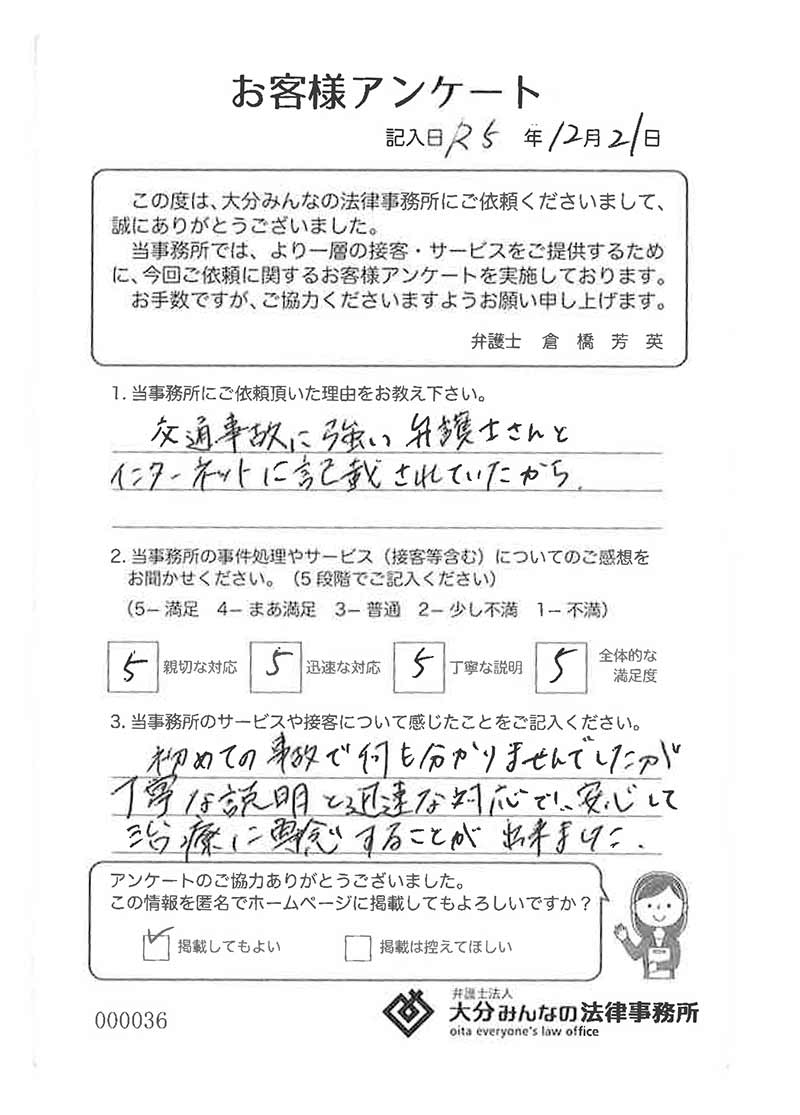 お客様アンケート
記入日 R5 年 12月 21日
この度は、大分みんなの法律事務所にご依頼くださいまして、
誠にありがとうございました。
当事務所では、より一層の接客・サービスをご提供するため
に、今回ご依頼に関するお客様アンケートを実施しております。
お手数ですが、ご協力くださいますようお願い申し上げます。
弁護士 倉 橋 芳 英
1. 当事務所にご依頼頂いた理由をお教え下さい。
交通事故に強い弁護士さんと
インターネットに記載されていたから。
2. 当事務所の事件処理やサービス（接客等含む）についてのご感想を
お聞かせください。（5段階でご記入ください）
（5− 満足 4− まあ満足 3− 普通 2− 少し不満 1− 不満）
5 親切な対応 5 迅速な対応 5 丁寧な説明 5 全体的な
満足度
3. 当事務所のサービスや接客について感じたことをご記入ください。
初めての事故で何も分かりませんでしたが
丁寧な説明と迅速な対応で、安心して
治療に専念することが出来ました。
アンケートのご協力ありがとうございました。
この情報を匿名でホームページに掲載してもよろしいですか？
掲載してもよい 掲載は控えてほしい
000036
弁護士法人
大分みんなの法律事務所
oita everyone's law office